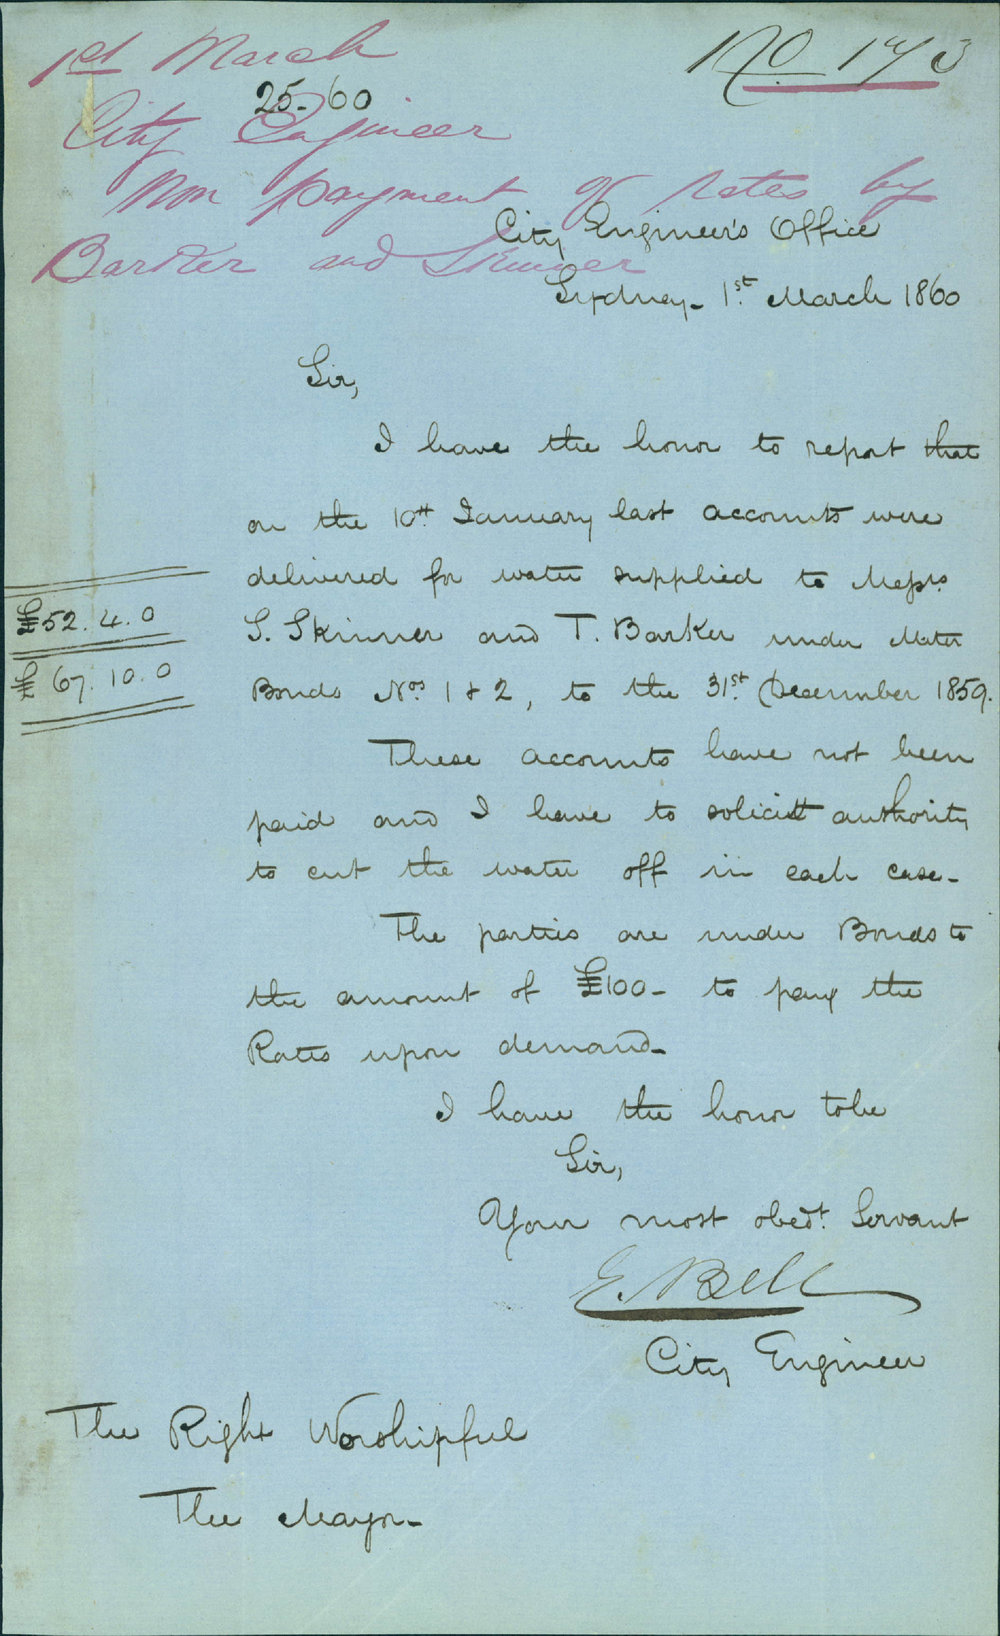 1st March
No 173
25-60
City Engineer
Non payment of rates by
Barker and Skinner
City Engineer's Office
Sydney - 1st March 1860
Sir,
I have the honor to report that
on the 10th January last accounts were
delivered for water supplied to Messrs.
£52.4.0 S. Skinner and T. Barker under Water
£67.10.0 Bonds Nos 1 & 2, to the 31st December 1859.
These accounts have not been
paid and I have to solicit authority
to cut the water off in each case -
The parties are under Bonds to
the amount of £100 - to pay the
Rates upon demand -
I have the honor to be
Sir,
Your most obedt. Servant
E. Bell
City Engineer
The Right Worshipful
The Mayor -